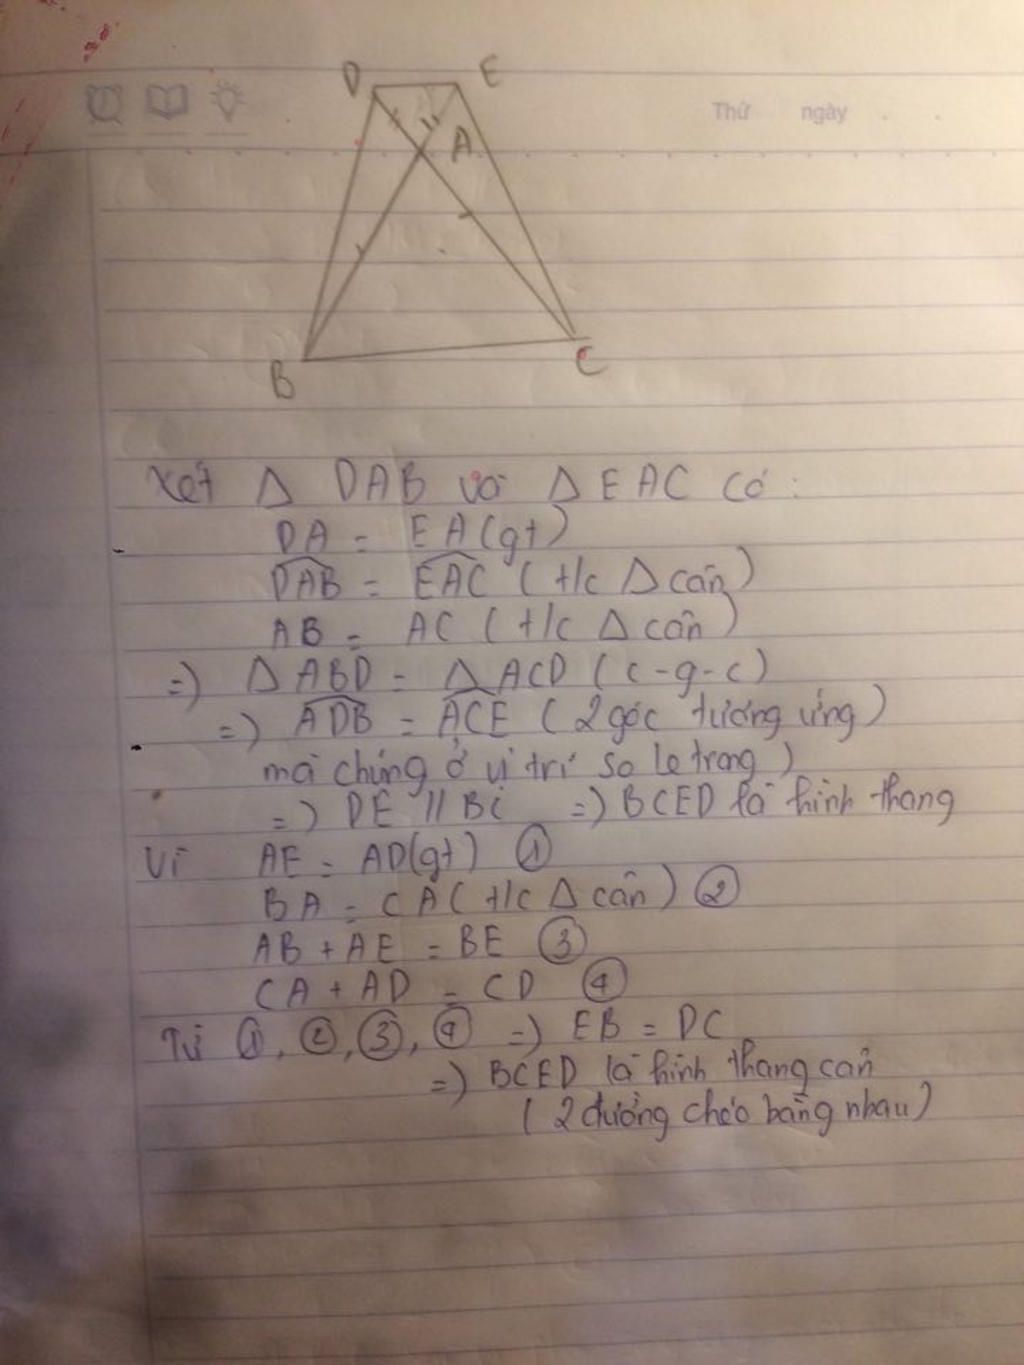 D E
Thứ ngày
A
B C
Xét Δ DAB và Δ EAC có:
DA = EA (gt)
DAB = EAC (t/c Δ cân)
AB = AC (t/c Δ cân)
=) Δ ABD = Δ ACD (c-g-c)
=) ADB = ACE (2 góc tương ứng)
mà chúng ở vị trí so le trong)
=) DE // BC =) BCED là hình thang
Vì AE = AD(gt) ①
BA = CA (t/c Δ cân) ②
AB + AE = BE ③
CA + AD = CD ④
Từ ①, ②, ③, ④ =) EB = DC
=) BCED là hình thang cân
(2 đường chéo bằng nhau)